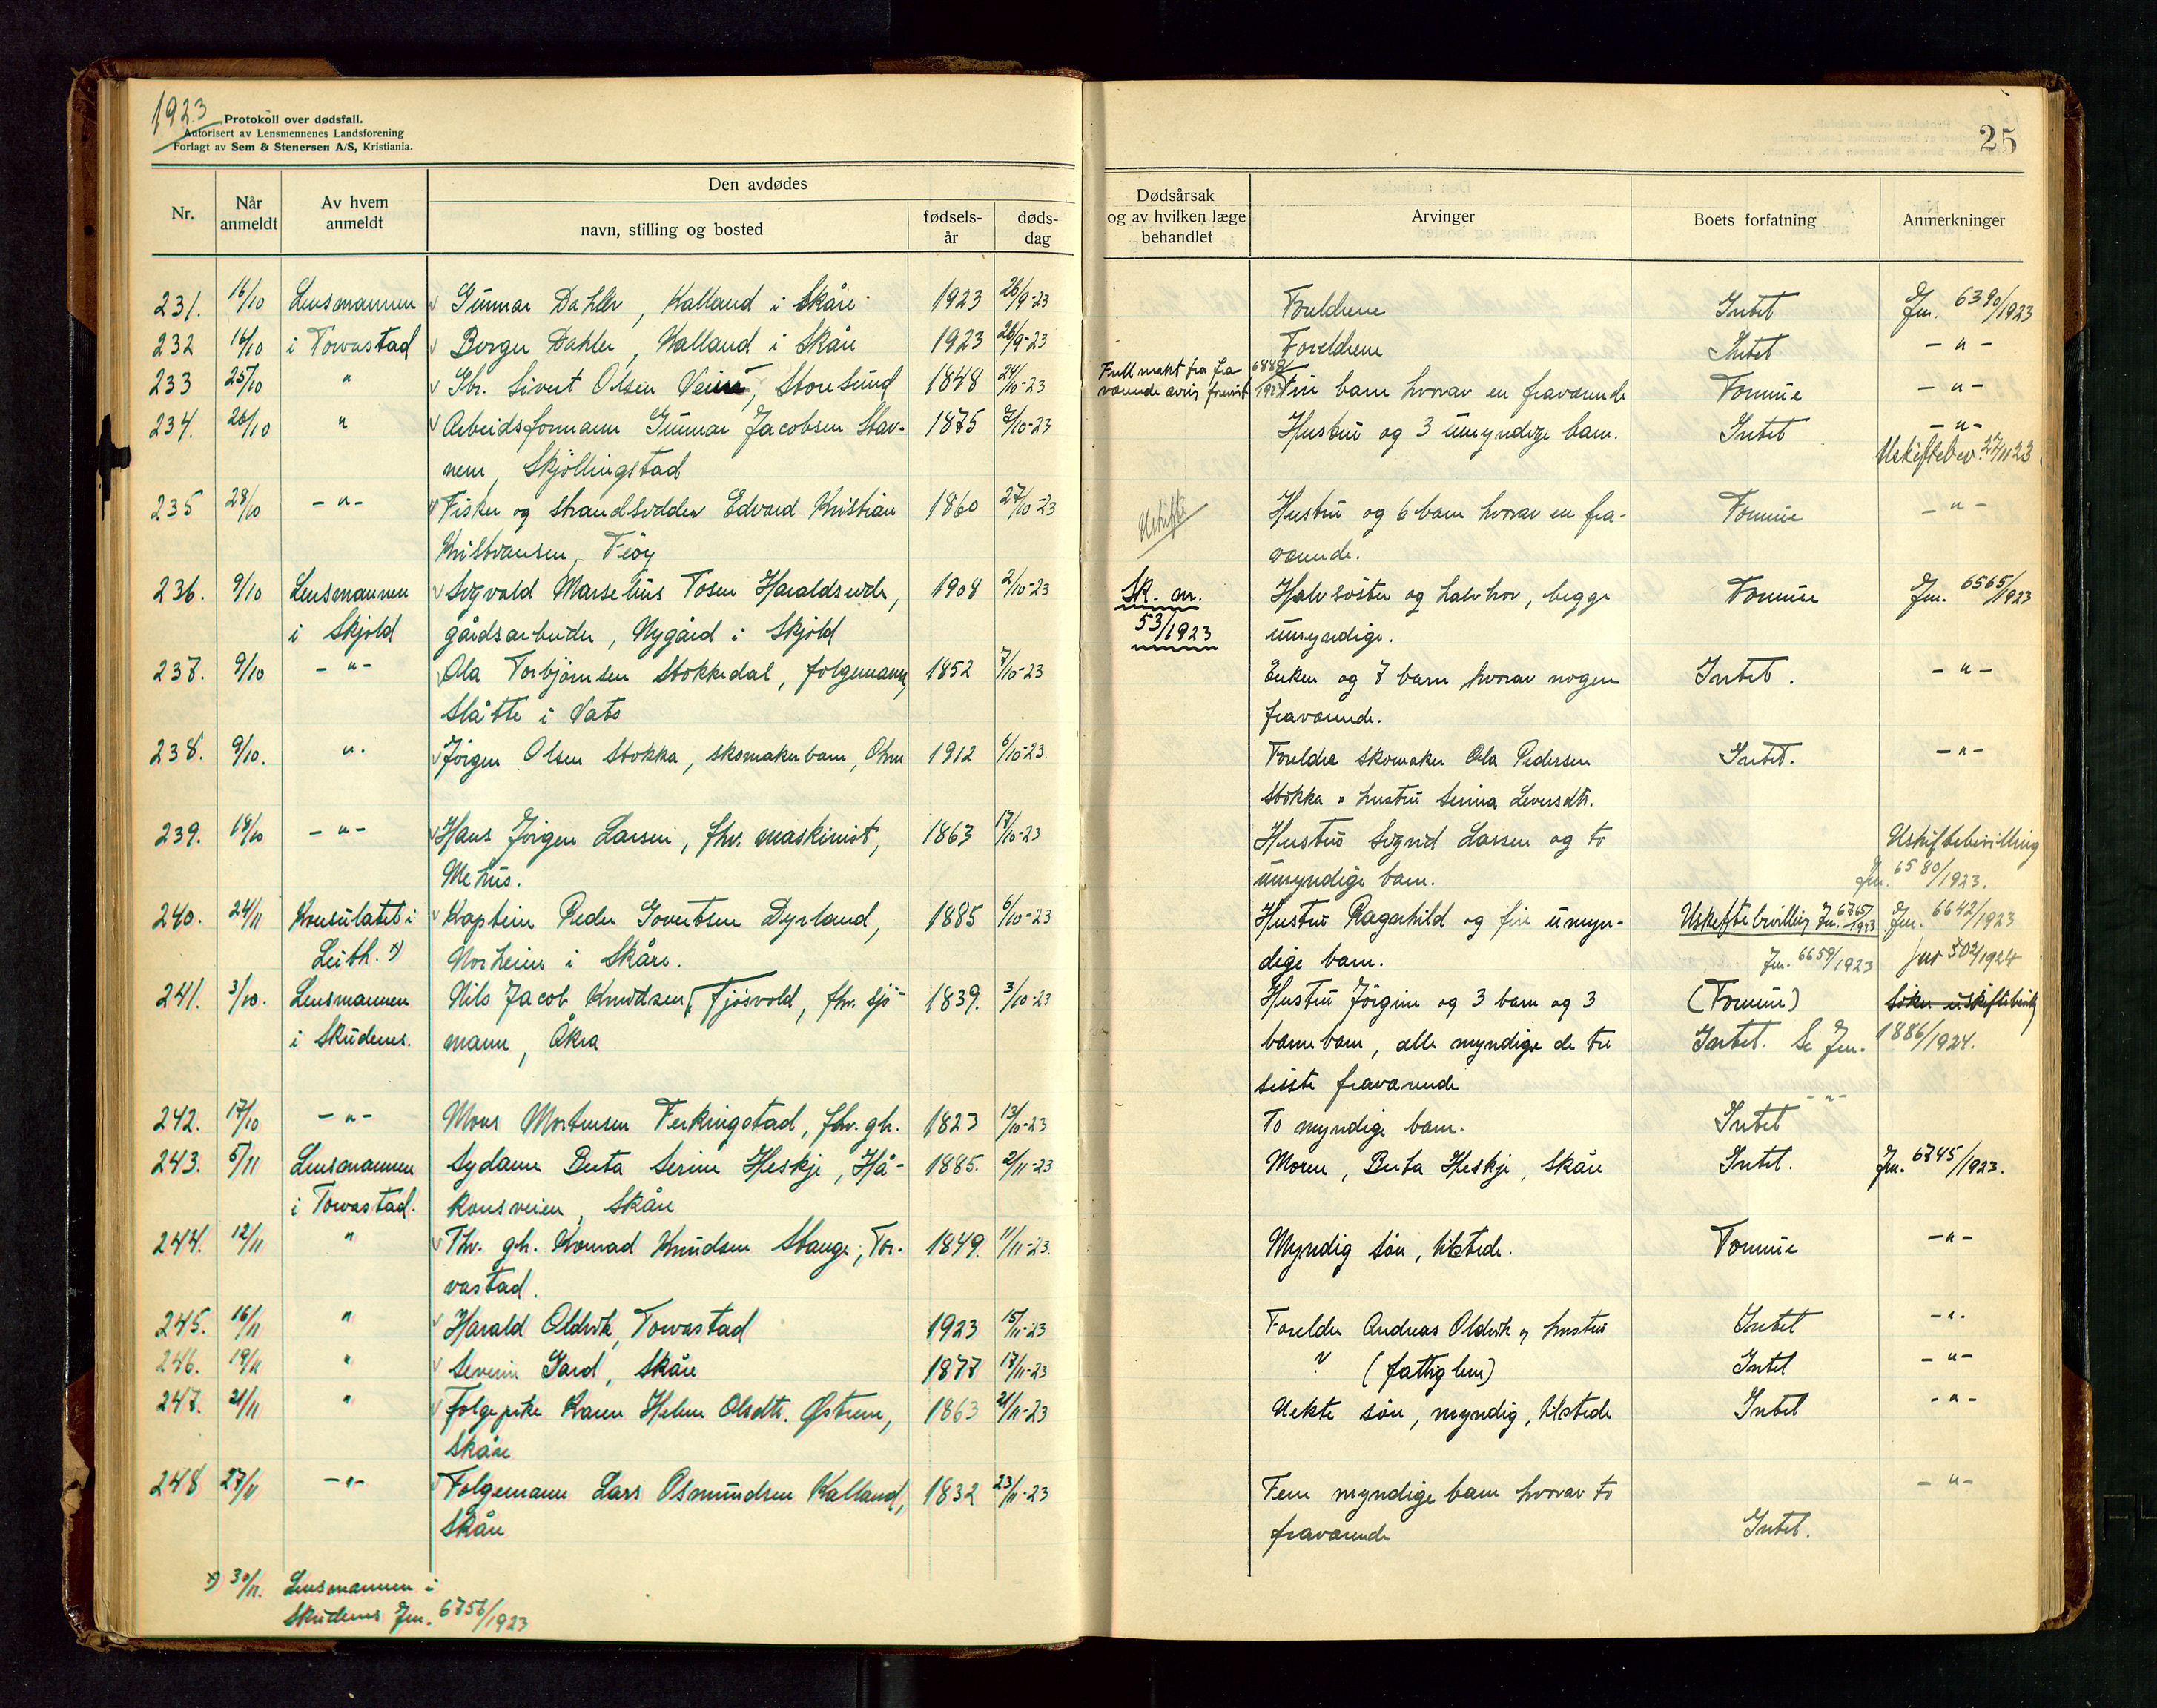 1923
Protokoll over dødsfall.
Autorisert av Lensmennenes Landsforening
Forlagt av Sem & Stenersen A/S, Kristiania.
25
Nr. Når anmeldt Av hvem anmeldt Den avdødes navn, stilling og bosted fødsels-år døds-dag Dødsårsak og av hvilken læge behandlet Arvinger Boets forfatning Anmerkninger
231. 16/10 Lensmannen Gunnar Dahler, Kalland i Skåre 1923 26/9-23 Foreldrene Intet Jnr. 6390/1923
232 16/10 i Torvastad Borger Dahler, Kalland i Skåre 1923 26/9-23 Foreldrene Intet -"-
233 25/10 " Sivert Olsen Storesund 1848 24/10-23 Fullmakt fra fra- 6889/ barn hvorav en fraværende Formue -"-
værende 1923
234. 26/10 " Arbeidsformann Gunnar Jacobsen Stav- 1875 7/10-23 Hustru og 3 umyndige barn. Intet -"-
nem, Skjøllingstad Uskiftebev. 27/11 23
235 28/10 -"- Fisker og strandsidder Edvard Kristian 1860 27/10-23 Uskifte Hustru og 6 barn hvorav en fra- Formue -"-
Kristiansen, Feøy værende.
236. 9/10 Lensmannen Sigvald Marselius Tosen Haraldseide, 1908 2/10-23 Sk. nr. Halvsøster og halvbror, begge Formue Jnr. 6565/1923
i Skjold gårdsarbeider, Nygård i Skjold 53/1923 umyndige.
237. 9/10 -"- Ola Torbjørnsen Stokkedal, følgemann, 1852 7/10-23 Enken og 7 barn hvorav nogen Intet. -"-
Slåtte i Vats fraværende.
238. 9/10. ". Jørgen Olsen Stokka, skomakerbarn, 1912 6/10-23. Foreldre skomaker Ola Pedersen Intet. -"-
Stokka " hustru Serina
239. 18/10 -"- Hans Jørgen Larsen, fhv. maskinist, 1863 17/10-23 Hustru Sigrid Larsen og to Uskiftebevilling
Mehus. umyndige barn. Jnr. 6580/1923.
240. 24/11 Konsulatet i Kaptein Peder Govertsen Dyrland, 1885 6/10-23 Hustru Ragnhild og fire umyn- Uskiftebevilling Jnr. 6765/1923 Jnr. 6642/1923
Leith. x) Norheim i Skåre. dige barn. Jnr. 6659/1923 Jnr 502/1924
241. 3/10. Lensmannen Nils Jacob Knudsen Fjøsvold, fhv. sjø- 1839. 3/10-23 Hustru Jørgine og 3 barn og 3 (Formue) Søker uskiftebevilg
i Skudenes. mann, Åkra barnebarn, alle myndige de tre Intet. Se Jnr. 1886/1924.
siste fraværende
242. 17/10 -"- Mons Mortensen Ferkingstad, fhv. gb. 1823 13/10-23 To myndige barn. Intet -"-
243. 5/11 Lensmannen Sydame Berta Serine Heskje, Hå- 1885. 2/11-23 Moren, Berta Heskje, Skåre Intet. Jnr. 6745/1923.
i Torvastad. konsveien, Skåre
244. 12/11 " Fhv. gb. Konrad Knudsen Stange, Tor- 1849. 11/11-23. Myndig søn, tilstede. Formue -"-
vastad.
245. 16/11 " Harald Oldvik, Torvastad 1923 15/11-23 Foreldre Andreas Oldvik og hustru Intet -".
246. 19/11 " Severin Gard, Skåre 1877 17/11-23 ? (fattiglem) Intet -"-
247. 21/11 " Følgepike Karen Helene Olsdtr. Østrem, 1863 21/11-23 Uekte søn, myndig, tilstede Intet -"-
Skåre
248 27/11 -"- Følgemann Lars Osmundsen Kalland, 1832 23/11-23 Fem myndige barn hvorav to -"-
Skåre fraværende Intet.
x) 30/11. Lensmannen i
Skudenes Jnr. 6756/1923